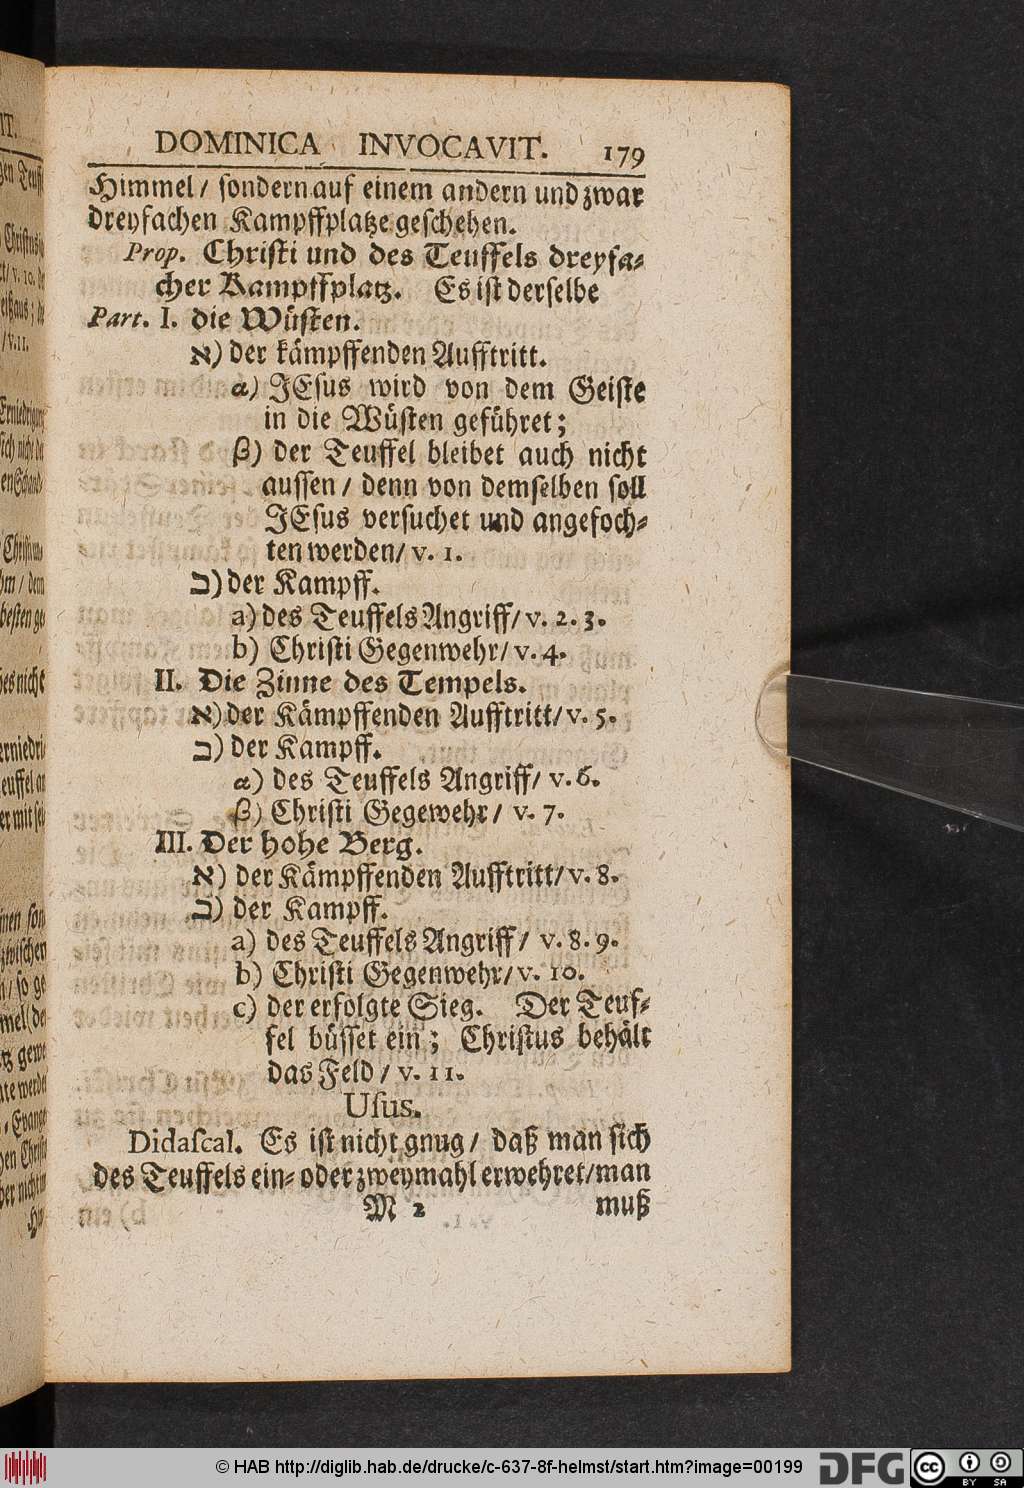 DOMINICA INVOCAVIT. 179
Himmel / sondern auf einem andern und zwar
dreyfachen Kampffplatze geschehen.
Prop. Christi und des Teuffels dreyfa-
cher Kampffplatz. Es ist derselbe
Part. I. die Wüsten.
א) der kämpffenden Aufftritt.
α) JEsus wird von dem Geiste
in die Wüsten geführet;
β) der Teuffel bleibet auch nicht
aussen / denn von demselben soll
JEsus versuchet und angefoch-
ten werden / v. 1.
ב) der Kampff.
a) des Teuffels Angriff / v. 2. 3.
b) Christi Gegenwehr / v. 4.
II. Die Zinne des Tempels.
א) der Kämpffenden Aufftritt / v. 5.
ב) der Kampff.
α) des Teuffels Angriff / v. 6.
β) Christi Gegewehr / v. 7.
III. Der hohe Berg.
א) der Kämpffenden Aufftritt / v. 8.
ב) der Kampff.
a) des Teuffels Angriff / v. 8. 9.
b) Christi Gegenwehr / v. 10.
c) der erfolgte Sieg. Der Teuf-
fel büsset ein; Christus behält
das Feld / v. 11.
Usus.
Didascal. Es ist nicht gnug / daß man sich
des Teuffels ein- oder zweymahl erwehret / man
M 2 muß
© HAB http://diglib.hab.de/drucke/c-637-8f-helmst/start.htm?image=00199
DFG
cc BY SA